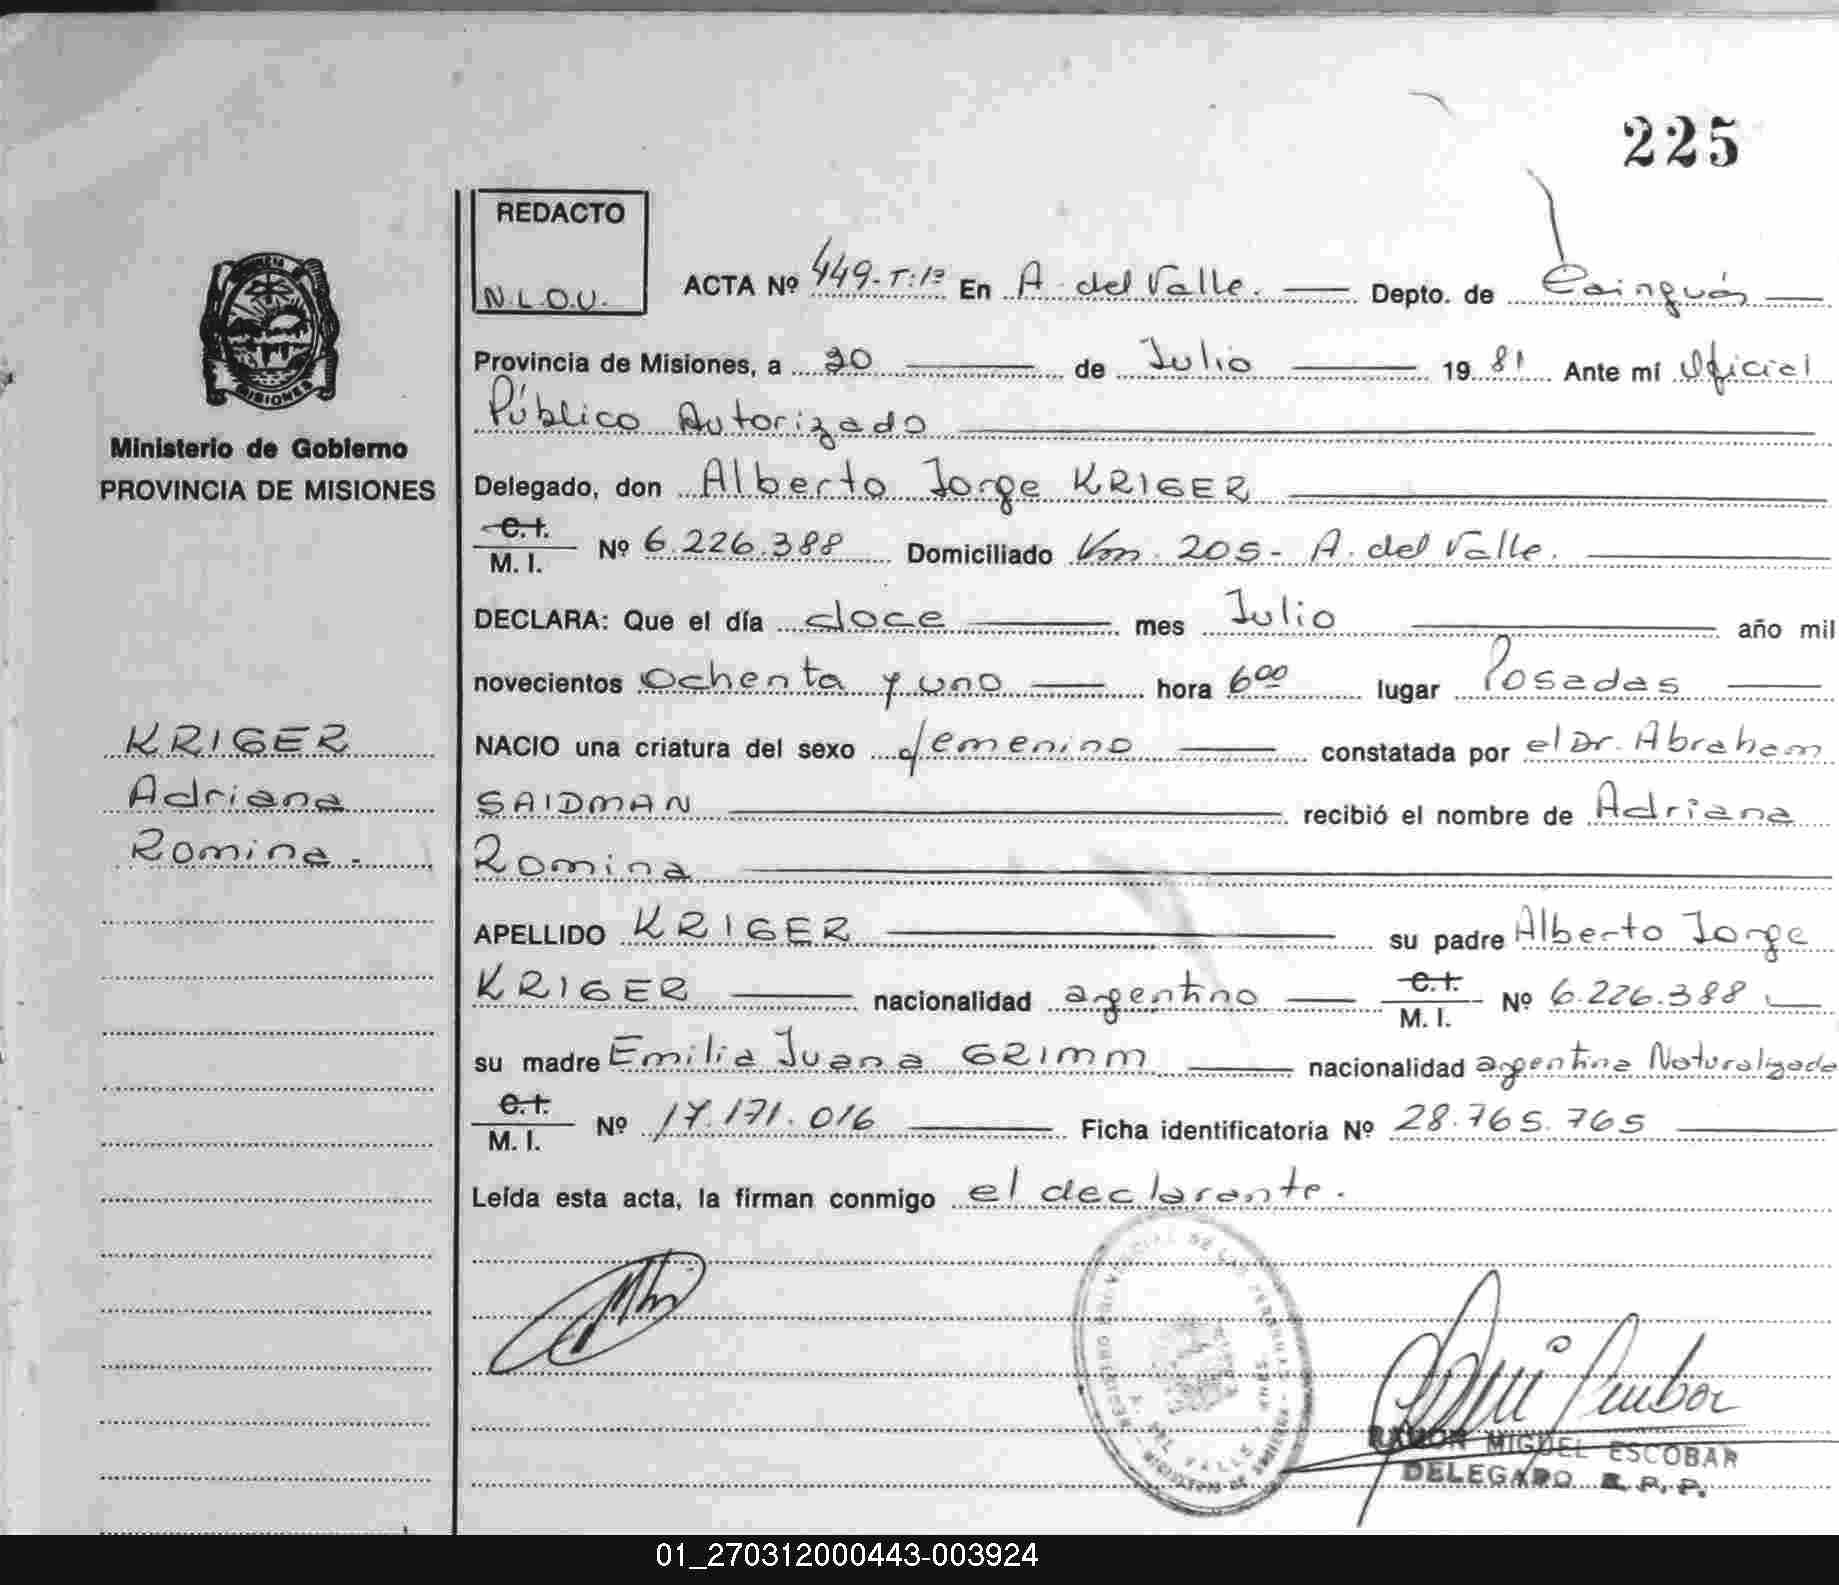 225
REDACTO
N.L.O.U.
ACTA Nº 449-T:1º En A. del Valle. Depto. de Cainguás
MISIONES
Provincia de Misiones, a 20 de Julio 1981 Ante mí Oficial
Público Autorizado
Ministerio de Gobierno
PROVINCIA DE MISIONES
Delegado, don Alberto Jorge KRIGER
C.I.
M. I. Nº 6.226.388 Domiciliado Km. 205- A. del Valle.
DECLARA: Que el día doce mes Julio año mil
novecientos ochenta y uno hora 6⁰⁰ lugar Posadas
KRIGER
Adriana
Romina.
NACIO una criatura del sexo femenino constatada por el Dr. Abraham
SAIDMAN recibió el nombre de Adriana
Romina
APELLIDO KRIGER su padre Alberto Jorge
KRIGER nacionalidad argentino C.I. M. I. Nº 6.226.388
su madre Emilia Juana GRIMM nacionalidad argentina Naturalizada
C.I.
M. I. Nº 17.171.016 Ficha identificatoria Nº 28.765.765
Leída esta acta, la firman conmigo el declarante.
RAMON MIGUEL ESCOBAR
DELEGADO R.P.P.
01_270312000443-003924